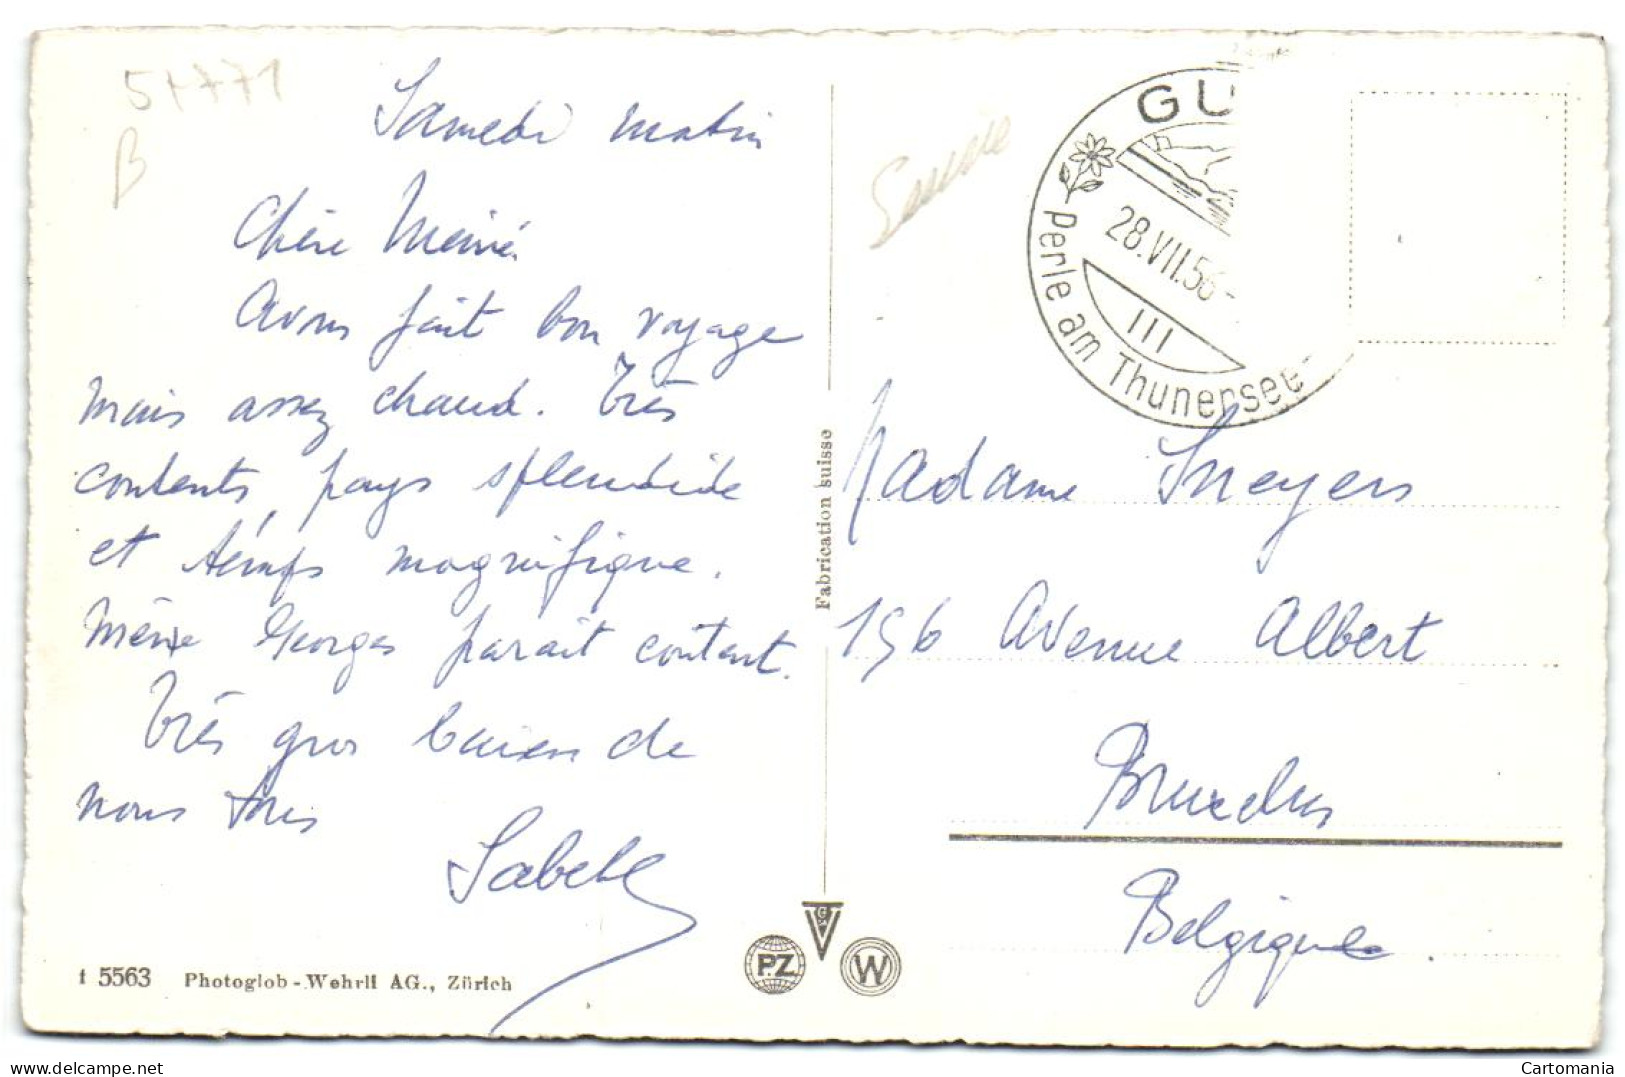 51771
B
Samedi matin
Chère Mémé
Avons fait bon voyage
mais assez chaud. Très
contents, pays splendide
et temps magnifique.
Même Georges parait content.
Très gros baisers de
nous tous
f 5563 Photoglob-Wehrli AG., Zürich
Fabrication suisse
PZ
W
Suisse
GU
28.VII.56-
III
Perle am Thunersee
Madame Meyers
196 Avenue Albert
Bruxelles
Belgique.
Cartomania